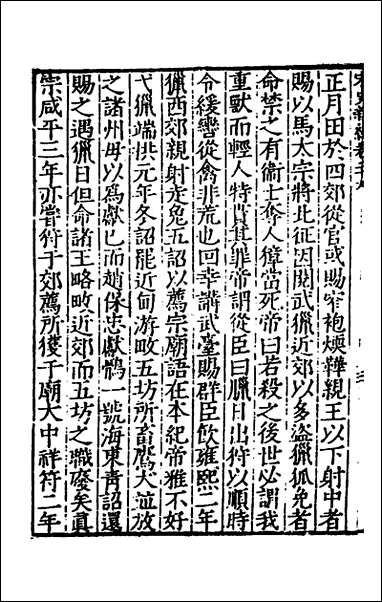 正月田於四郊從官或賜窄袍煖鞾親王以下射中者
賜以馬太宗將北征因閱武獵近郊以多盜獵狐兔者
命禁之有衛士奪人獐當死帝曰若殺之後世必謂我
重獸而輕人特貰其罪帝謂從臣曰臘日出狩以順時
令緩轡從禽非荒也回幸講武臺賜群臣飲雍熙二年
獵西郊親射走兔五詔以薦宗廟語在本紀帝雅不好
弋獵端拱元年冬詔罷近甸游畋五坊所畜鷹犬並放
之諸州毋以爲獻已而趙保忠獻鶻一號海東青詔還
賜之遇臘日但命諸王略畋近郊而五坊之職廢矣眞
宗咸平三年亦嘗狩于郊薦所獲于廟大中祥符二年